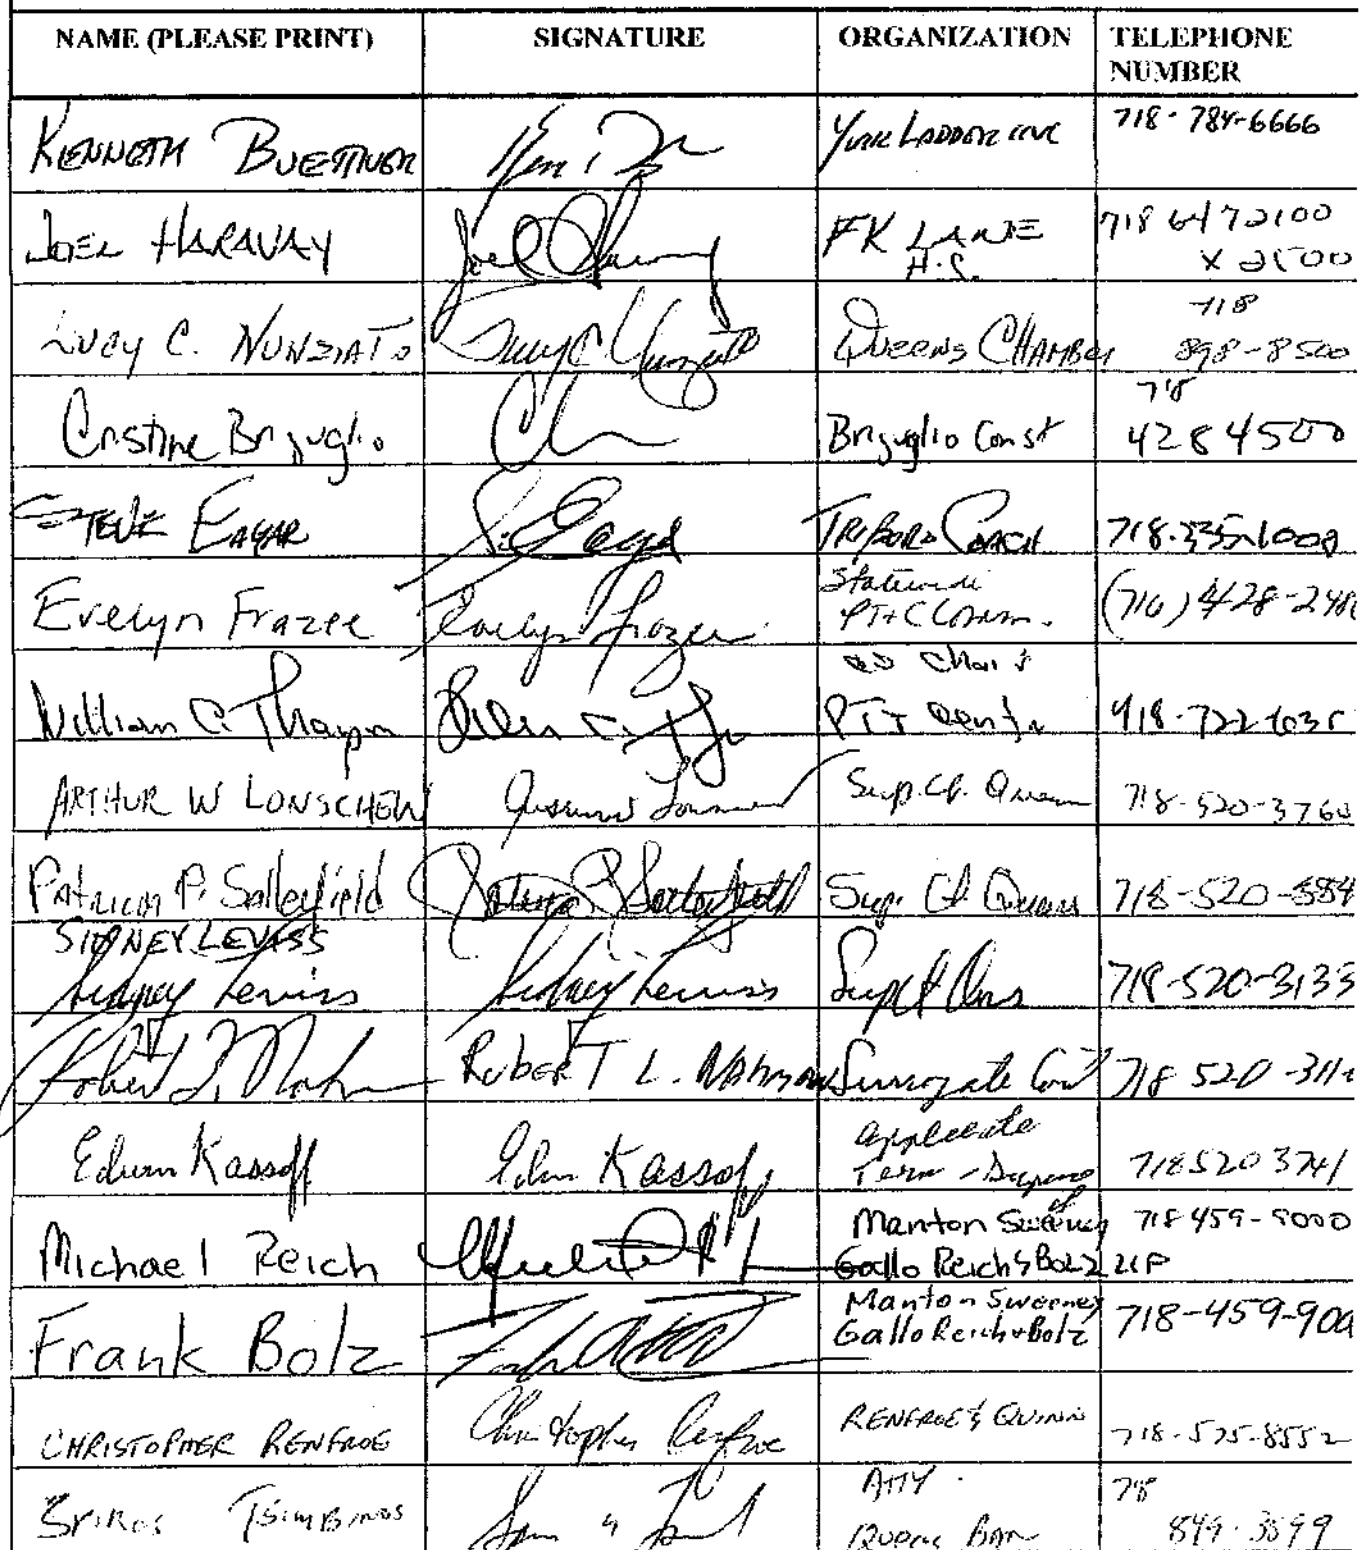 NAME (PLEASE PRINT) SIGNATURE ORGANIZATION TELEPHONE NUMBER
KENNETH BUETTNER YORK LADDER INC 718-784-6666
JOEL HARAVAY Joel FK LANE H.S. 718 6472100 X 2500
LUCY C. NUNZIATO Lucy C Nunziato QUEENS CHAMBER 718 898-8500
Cristine Briguglio Briguglio Const 718 4284500
STEVE EAGAR TRIBORO COACH 718.335.1000
Evelyn Frazee Evelyn Frazee Statewide Comm. (716) 428-248
co chair
William C. 
ARTHUR W LONSCHEIN Sup. Ct. Queens 718-520-3760
Patricia P. Satterfield Patricia P. Satterfield Sup. Ct. Queens 718-520-
SIDNEY LEVISS
Sidney Leviss Sidney Leviss Sup Ct 718-520-3133
Robert L. Nahman ROBERT L. NAHMAN Surrogate 718 520-311
Edwin Kassoff Edwin Kassoff Appellate Term 718 520 3741
Michael Reich Manton Sweeney Gallo Reich & Bolz LLP 718 459-9000
Frank Bolz Manton Sweeney Gallo Reich + Bolz 718-459-900
CHRISTOPHER RENFROE Christopher Renfroe RENFROE & QUINN 718-575-8552
SPIROS TSIMBINOS ATTY. QUEENS BAR 718 849-3599